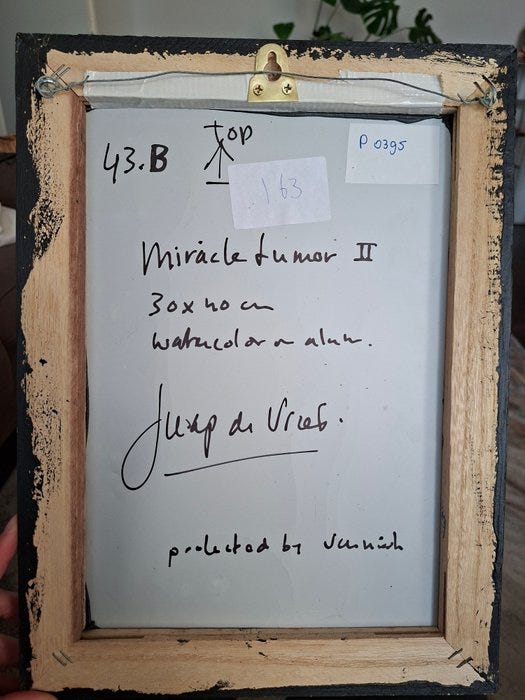 top
43.B
P 0395
.163
Miracle tumor II
30x40 cm
watercolor on alum.
Jaap de Vries.
protected by varnish